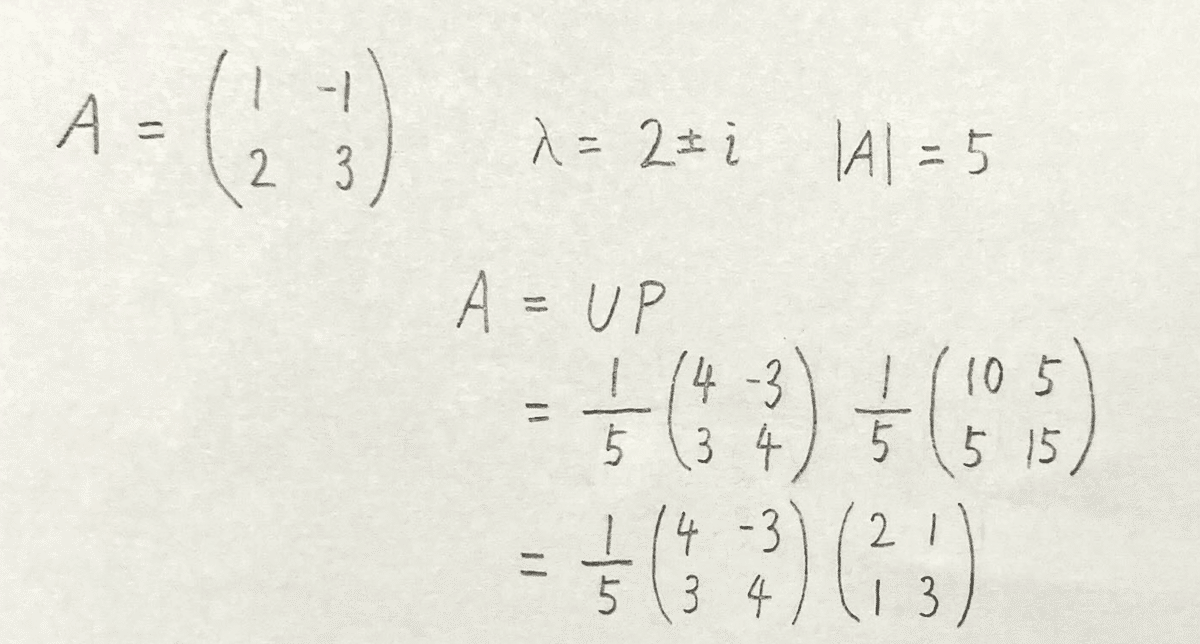 A = (1 -1
2 3) λ = 2±i |A| = 5
A = UP
= 1/5 (4 -3
3 4) 1/5 (10 5
5 15)
= 1/5 (4 -3
3 4) (2 1
1 3)